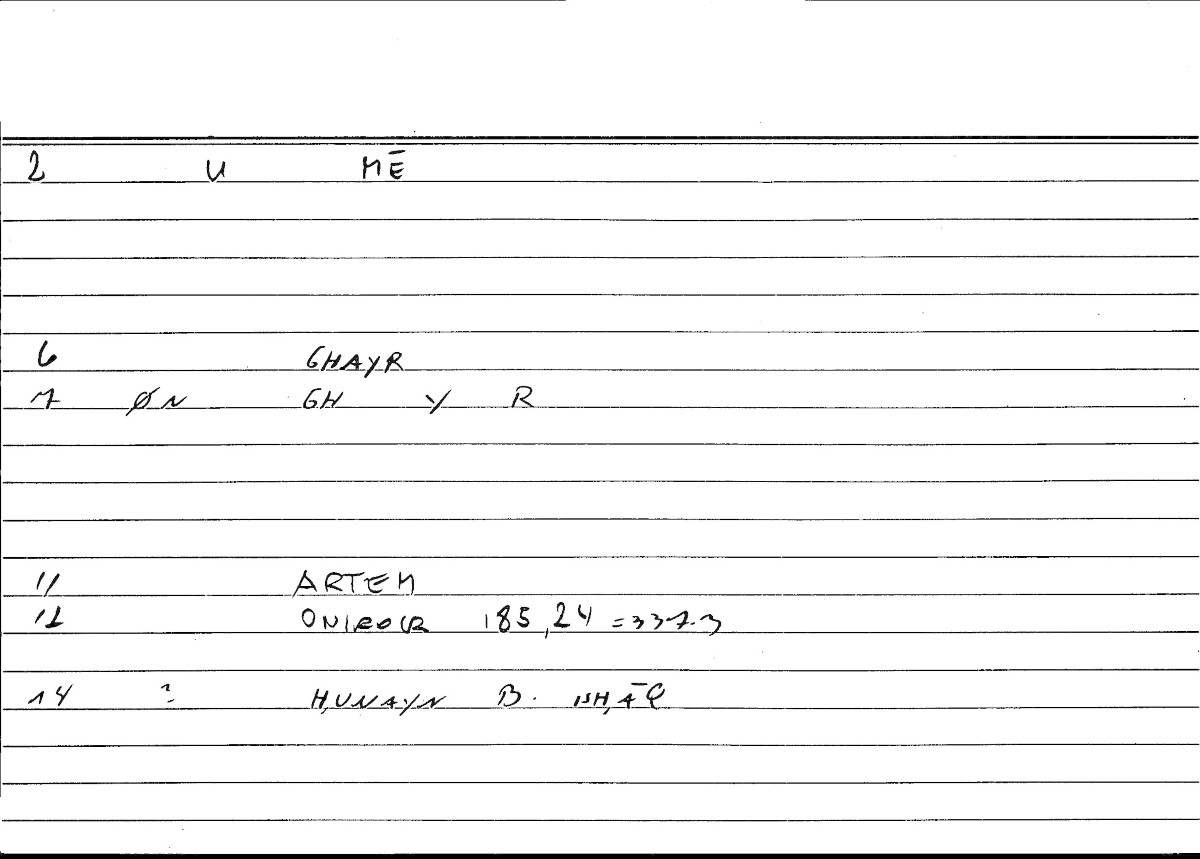 2 U MĒ
6 GHAYR
7 ØN GH Y R
11 ARTEM
12 ONIROCR 185,24 =337.3
14 ? H,UNAYN B. ISH,ĀQ